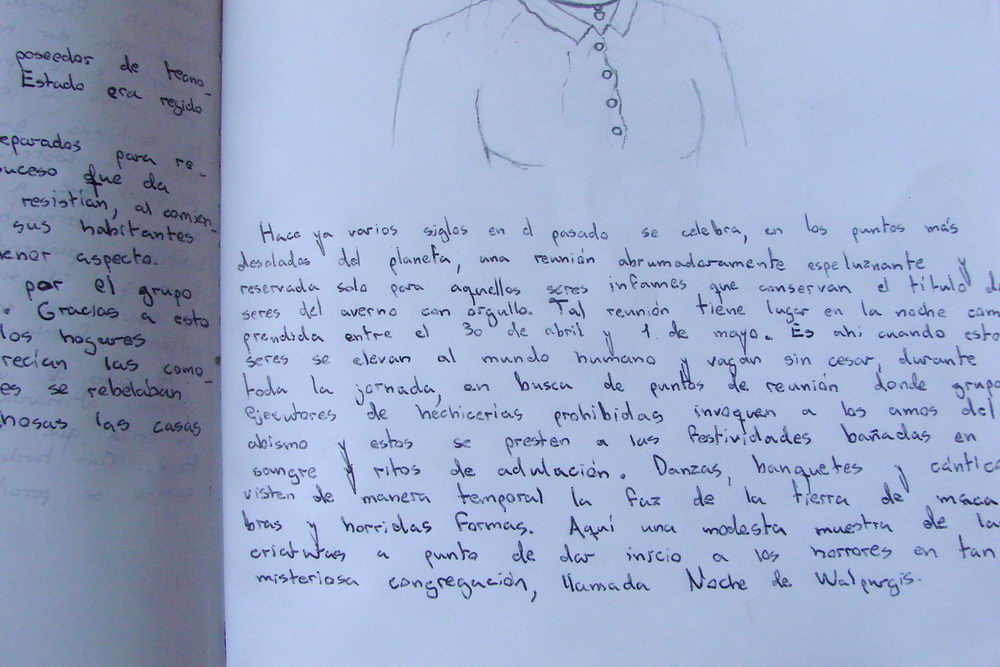 poseedor de tecno-
Estado era regido
eparados para re-
suceso que da
resistían, al comien-
sus habitantes
menor aspecto.
por el grupo
. Gracias a esto
los hogares
recían las como-
es se rebelaban
hosas las casas
Hace ya varios siglos en el pasado se celebra, en los puntos más
desolados del planeta, una reunión abrumadoramente espeluznante y
reservada solo para aquellos seres infames que conservan el título de
seres del averno con orgullo. Tal reunión tiene lugar en la noche com
prendida entre el 30 de abril y 1 de mayo. Es ahi cuando esto
seres se elevan al mundo humano y vagan sin cesar, durante
toda la jornada, en busca de puntos de reunión donde grupo
ejecutores de hechicerías prohibidas invoquen a los amos del
abismo y estos se presten a las festividades bañadas en
sangre y ritos de adulación. Danzas, banquetes y cántico
visten de manera temporal la faz de la tierra de maca
bras y horridas formas. Aquí una modesta muestra de la
criaturas a punto de dar inicio a los horrores en tan
misteriosa congregación, llamada Noche de Walpurgis.